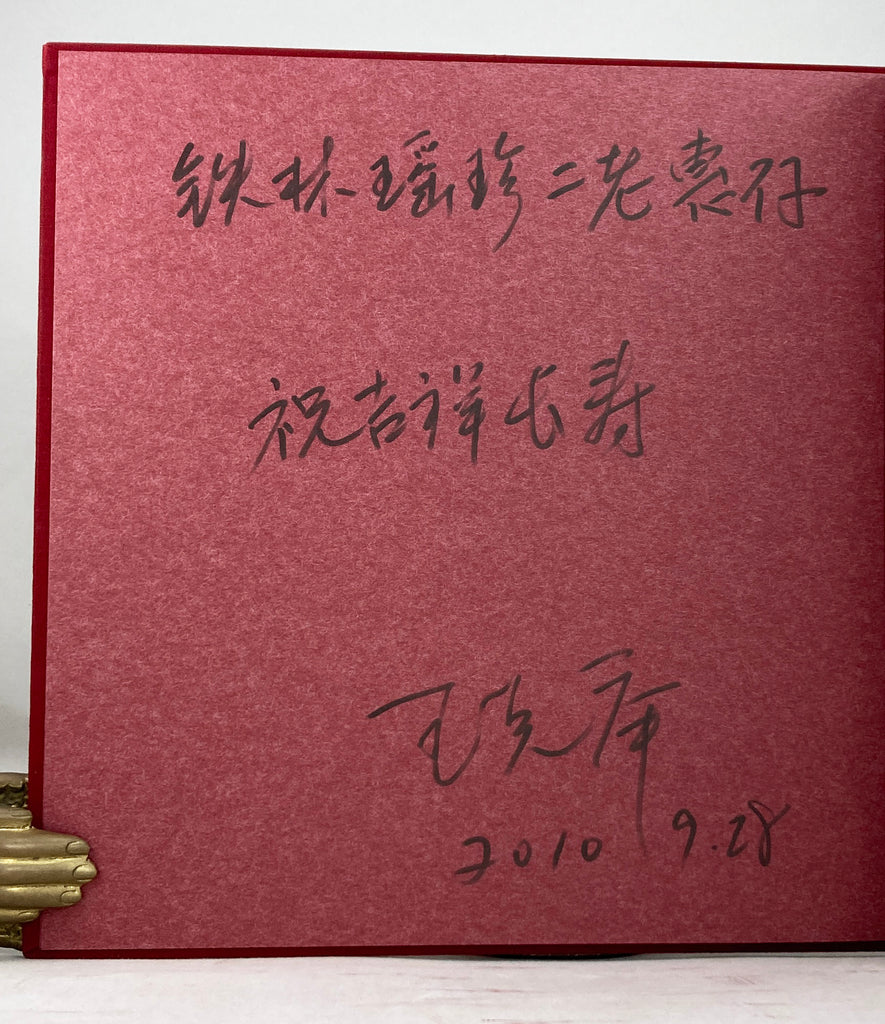 铁林瑶珍二老惠存
祝吉祥长寿
王克
2010 9.28